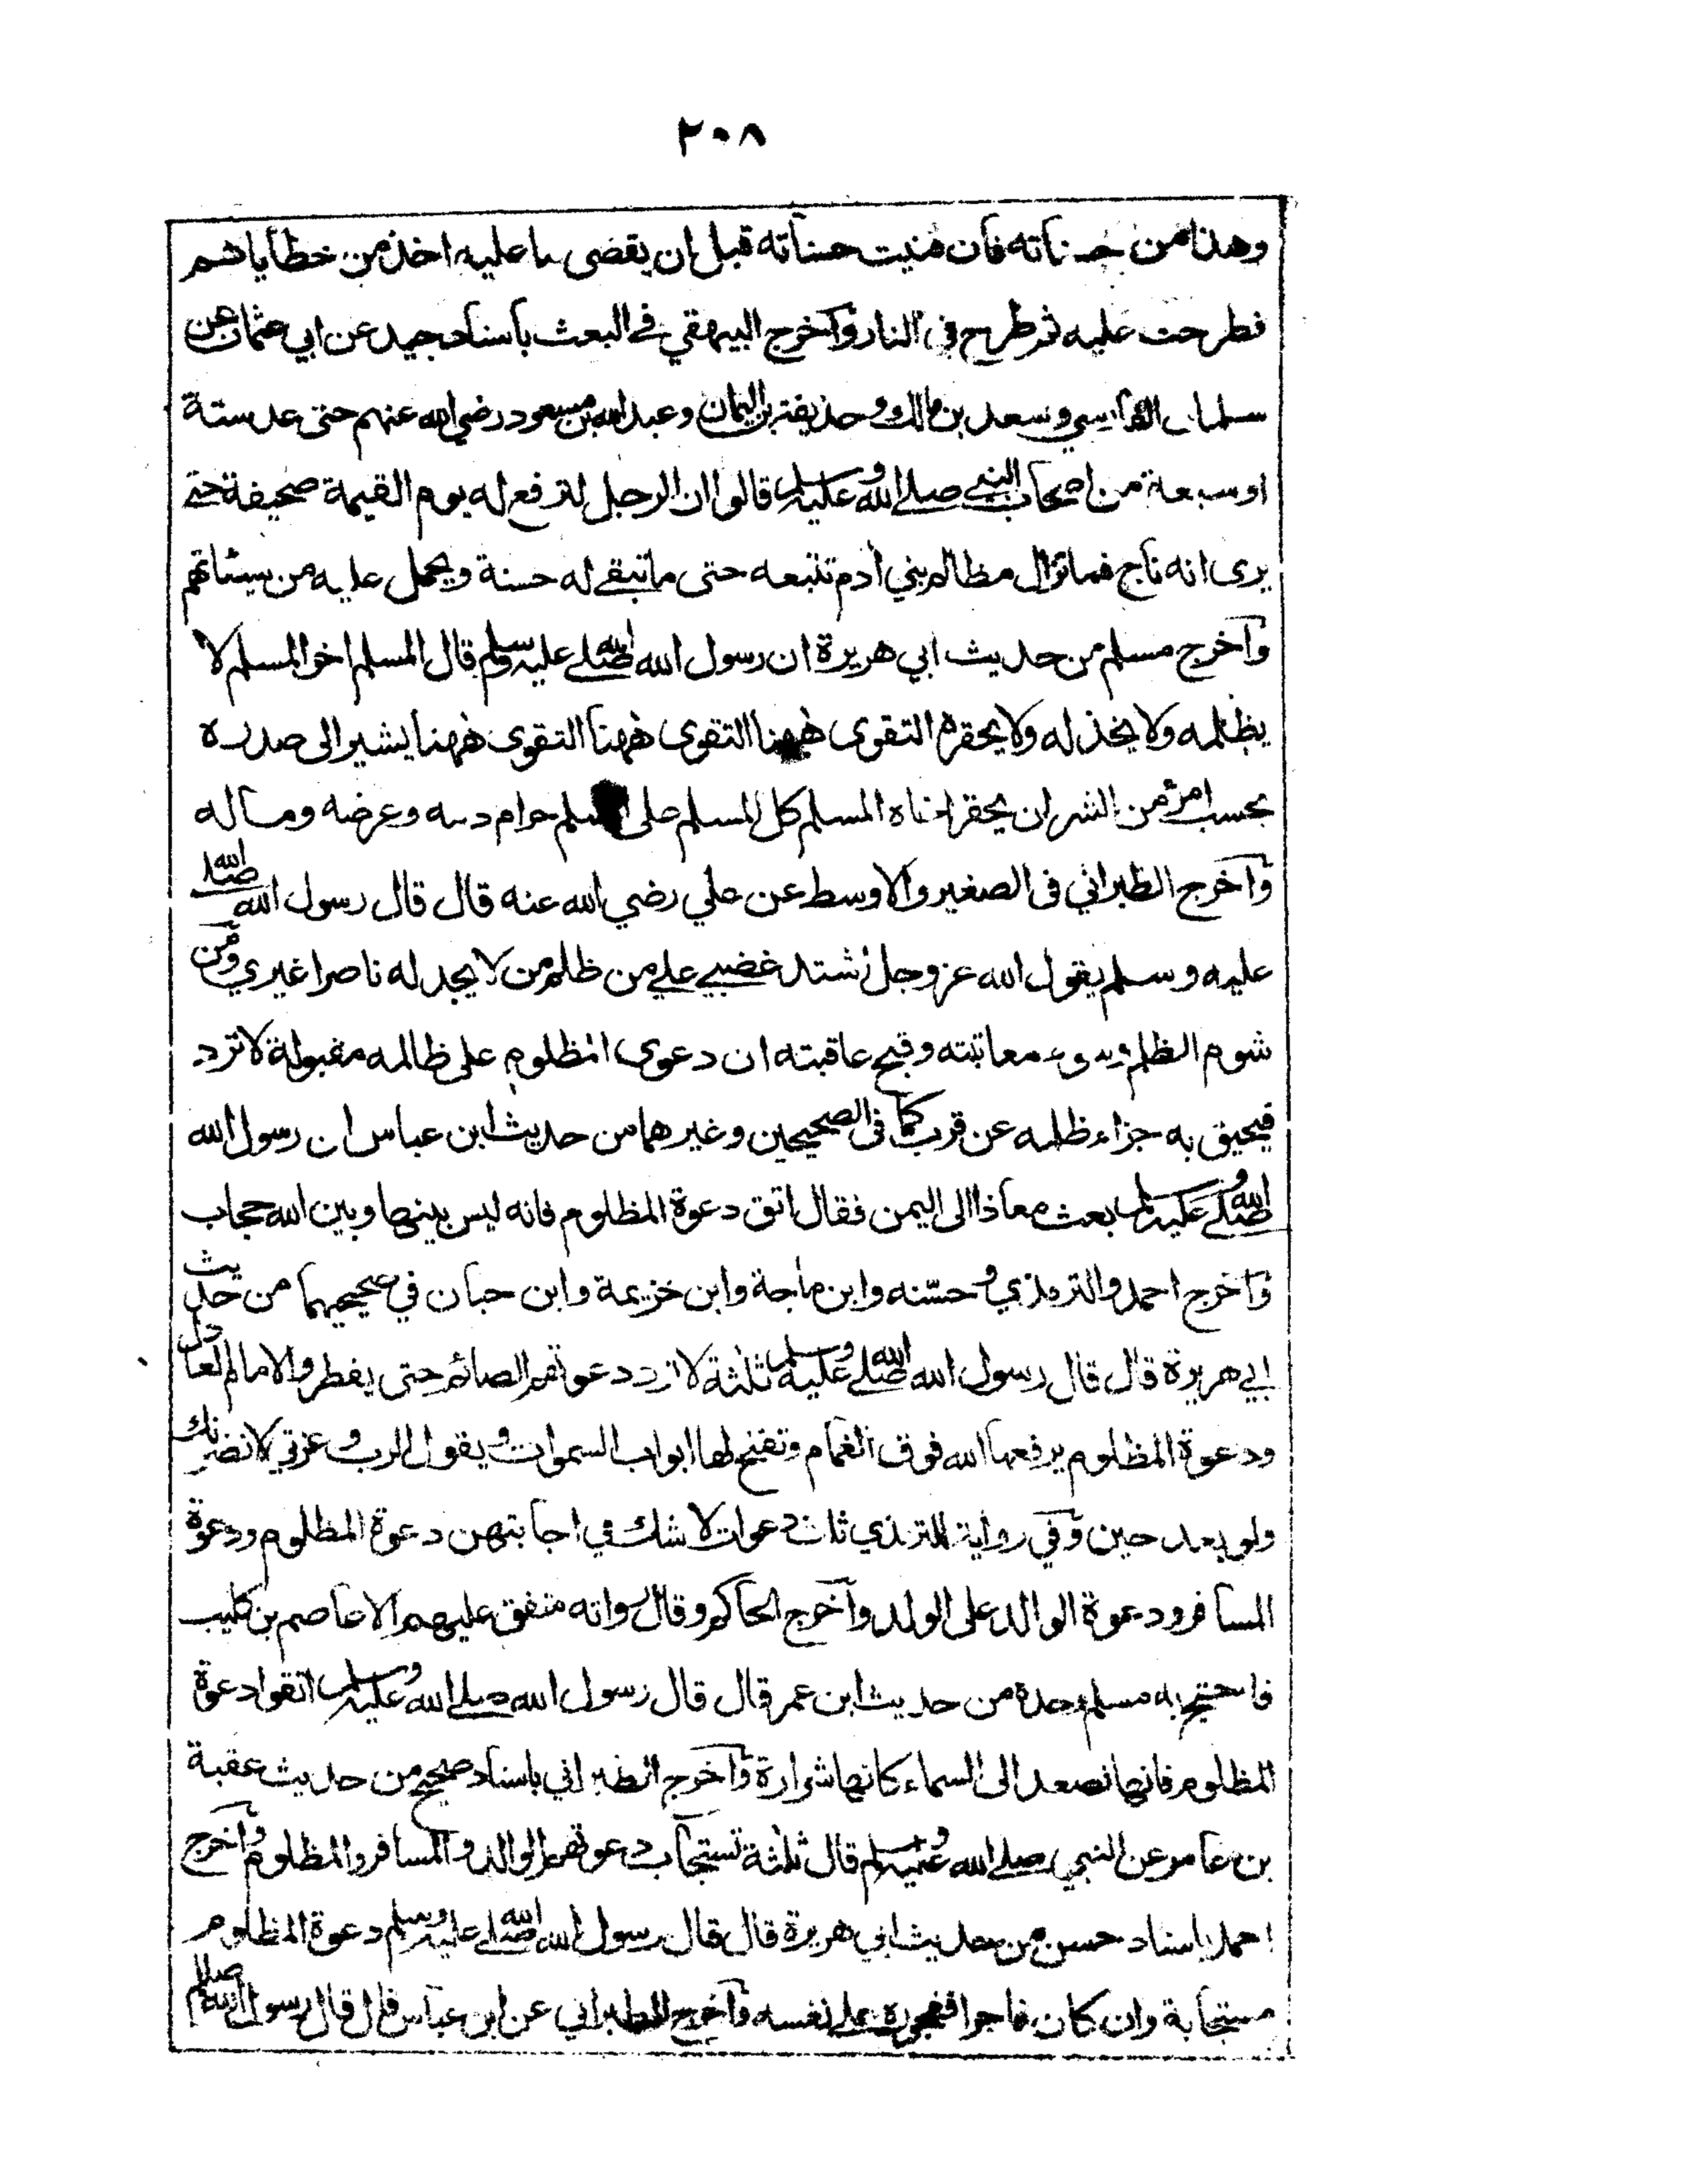 ٢٠٨
وهذا من حسناته فان فنيت حسناته قبل ان يقضى ما عليه اخذ من خطاياهم
فطرحت عليه ثم طرح في النار وآخرج البيهقي في البعث باسناد جيد عن ابي عثمان عن
سلمان الفارسي وسعد بن مالك وحذيفة بن اليمان وعبد الله بن مسعود رضي الله عنهم حتى عد ستة
او سبعة من اصحاب النبي صلى الله عليه وسلم قالوا ان الرجل لترفع له يوم القيمة صحيفة حتى
يرى انه ناج فما تزال مظالم بني آدم تتبعه حتى ما تبقى له حسنة ويحمل عليه من سيئاتهم
وآخرج مسلم من حديث ابي هريرة ان رسول الله صلى الله عليه وسلم قال المسلم اخو المسلم لا
يظلمه ولا يخذله ولا يحقره التقوى ههنا التقوى ههنا التقوى ههنا يشير الى صدره
بحسب امرئ من الشر ان يحقر اخاه المسلم كل المسلم على المسلم حرام دمه وعرضه وماله
وآخرج الطبراني في الصغير والاوسط عن علي رضي الله عنه قال قال رسول الله صلى الله
عليه وسلم يقول الله عز وجل اشتد غضبي على من ظلم من لا يجد له ناصرا غيري ومن
شوم الظلم وسوء معاتبته وقبح عاقبته ان دعوى المظلوم على ظالمه مقبولة لا ترد
فيحيق به جزاء ظلمه عن قرب كما في الصحيحين وغيرهما من حديث ابن عباس ان رسول الله
صلى الله عليه وسلم بعث معاذا الى اليمن فقال اتق دعوة المظلوم فانه ليس بينها وبين الله حجاب
وآخرج احمد والترمذي وحسّنه وابن ماجة وابن خزيمة وابن حبان في صحيحيهما من حديث
ابي هريرة قال قال رسول الله صلى الله عليه وسلم ثلثة لا ترد دعوتهم الصائم حتى يفطر والامام العادل
ودعوة المظلوم يرفعها الله فوق الغمام وتفتح لها ابواب السموات ويقول الرب وعزتي لانصرنك
ولو بعد حين وفي رواية للترمذي ثلث دعوات لا شك في اجابتهن دعوة المظلوم ودعوة
المسافر ودعوة الوالد على الولد وآخرج الحاكم وقال رواته متفق عليهم الا عاصم بن كليب
فاحتج به مسلم وحده من حديث ابن عمر قال قال رسول الله صلى الله عليه وسلم اتقوا دعوة
المظلوم فانها تصعد الى السماء كانها شرارة وآخرج الطبراني باسناد صحيح من حديث عقبة
بن عامر عن النبي صلى الله عليه وسلم قال ثلثة تستجاب دعوتهم الوالد والمسافر والمظلوم وآخرج
احمد باسناد حسن من حديث ابي هريرة قال قال رسول الله صلى الله عليه وسلم دعوة المظلوم
مستجابة وان كان فاجرا ففجوره على نفسه وآخرج الطبراني عن ابن عباس قال قال رسول الله صللم